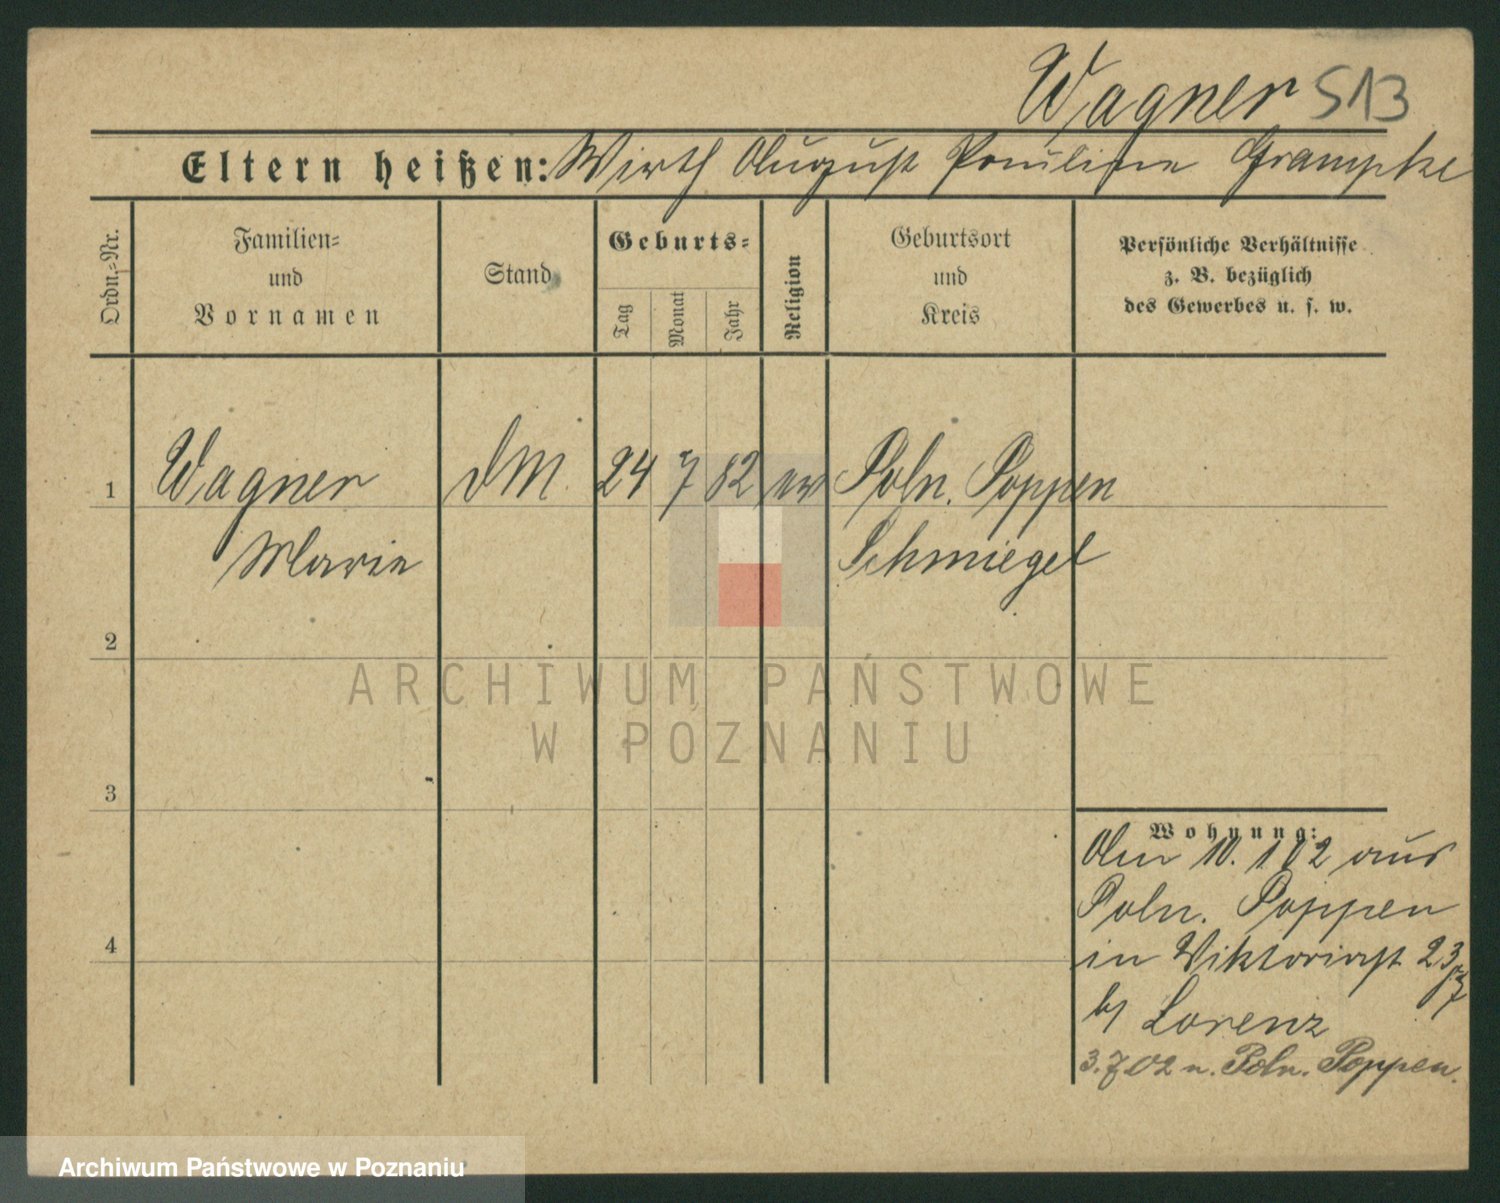 Wagner 513
Eltern heißen: Wirth August Pauline Grampke
Ordn.-Nr.
Familien-
und
Vornamen
Stand
Geburts-
Tag
Monat
Jahr
Religion
Geburtsort
und
Kreis
Persönliche Verhältnisse
z. B. bezüglich
des Gewerbes u. s. w.
1 Wagner DM. 24 7 82 ev Poln. Poppen
Marie Schmiegel
2
ARCHIWUM PAŃSTWOWE
W POZNANIU
3
Wohnung:
Am 10. 1 02 aus
Poln. Poppen
4
in Viktoriast 23
b/ Lorenz
3.7 02 n. Poln. Poppen.
Archiwum Państwowe w Poznaniu